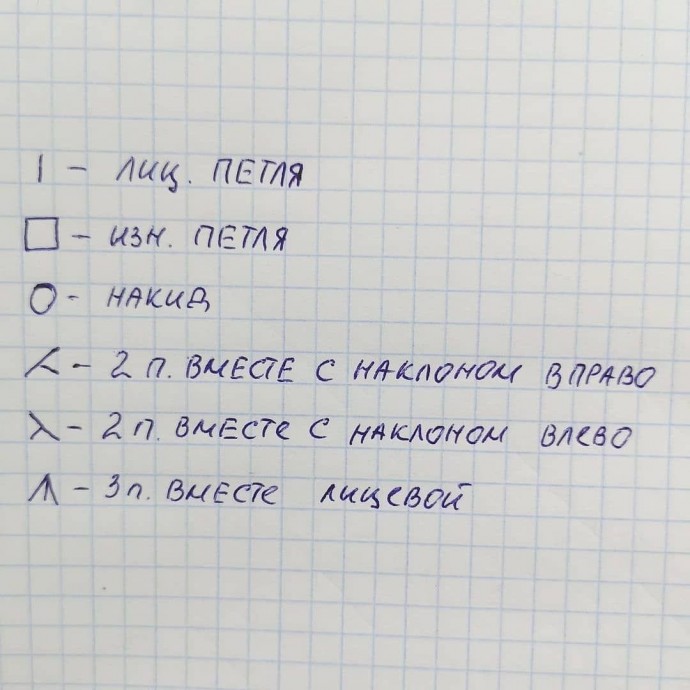 | - ЛИЦ. ПЕТЛЯ
□ - ИЗН. ПЕТЛЯ
O - НАКИД
⋌ - 2 П. ВМЕСТЕ С НАКЛОНОМ ВПРАВО
λ - 2 П. ВМЕСТЕ С НАКЛОНОМ ВЛЕВО
⋔ - 3 П. ВМЕСТЕ ЛИЦЕВОЙ